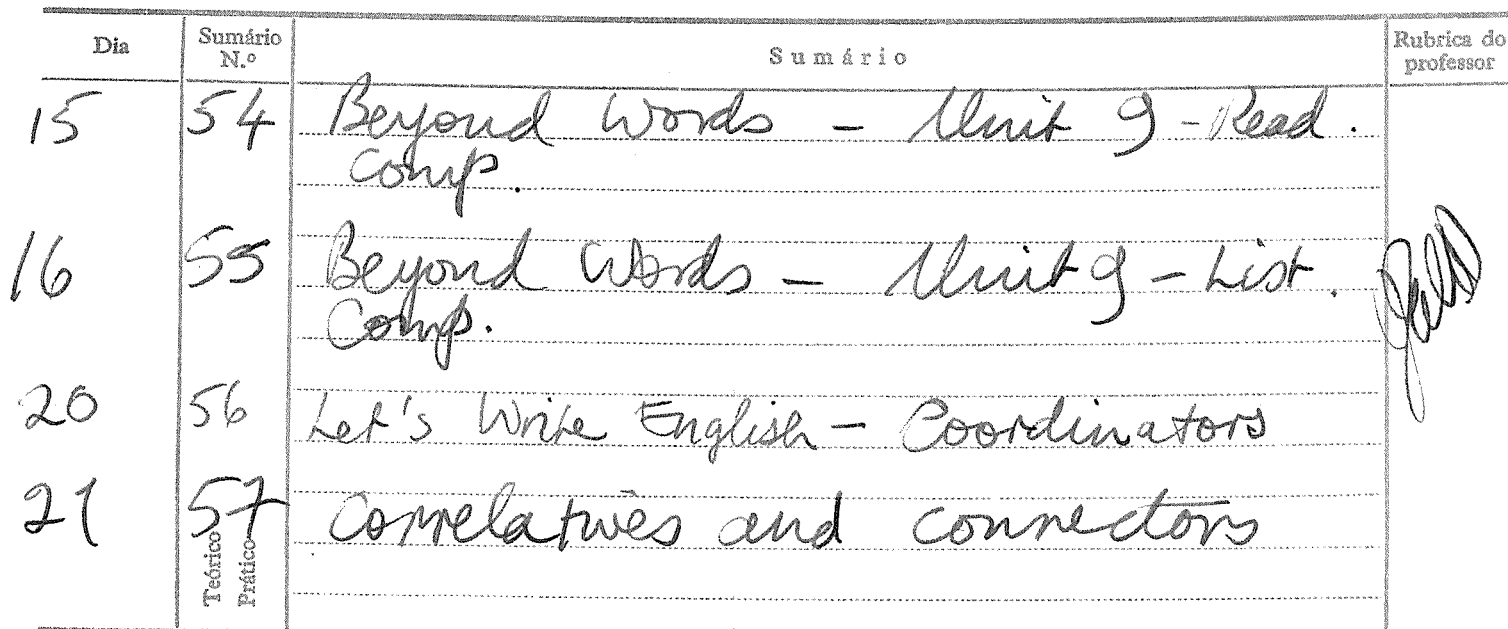 Dia Sumário N.º Sumário Rubrica do professor
15 54 Beyond Words - Unit 9 - Read.
Comp.
16 55 Beyond Words - Unit 9 - List.
Comp.
20 56 Let's Write English - Coordinators
21 57 Correlatives and connectors
Teórico
Prático